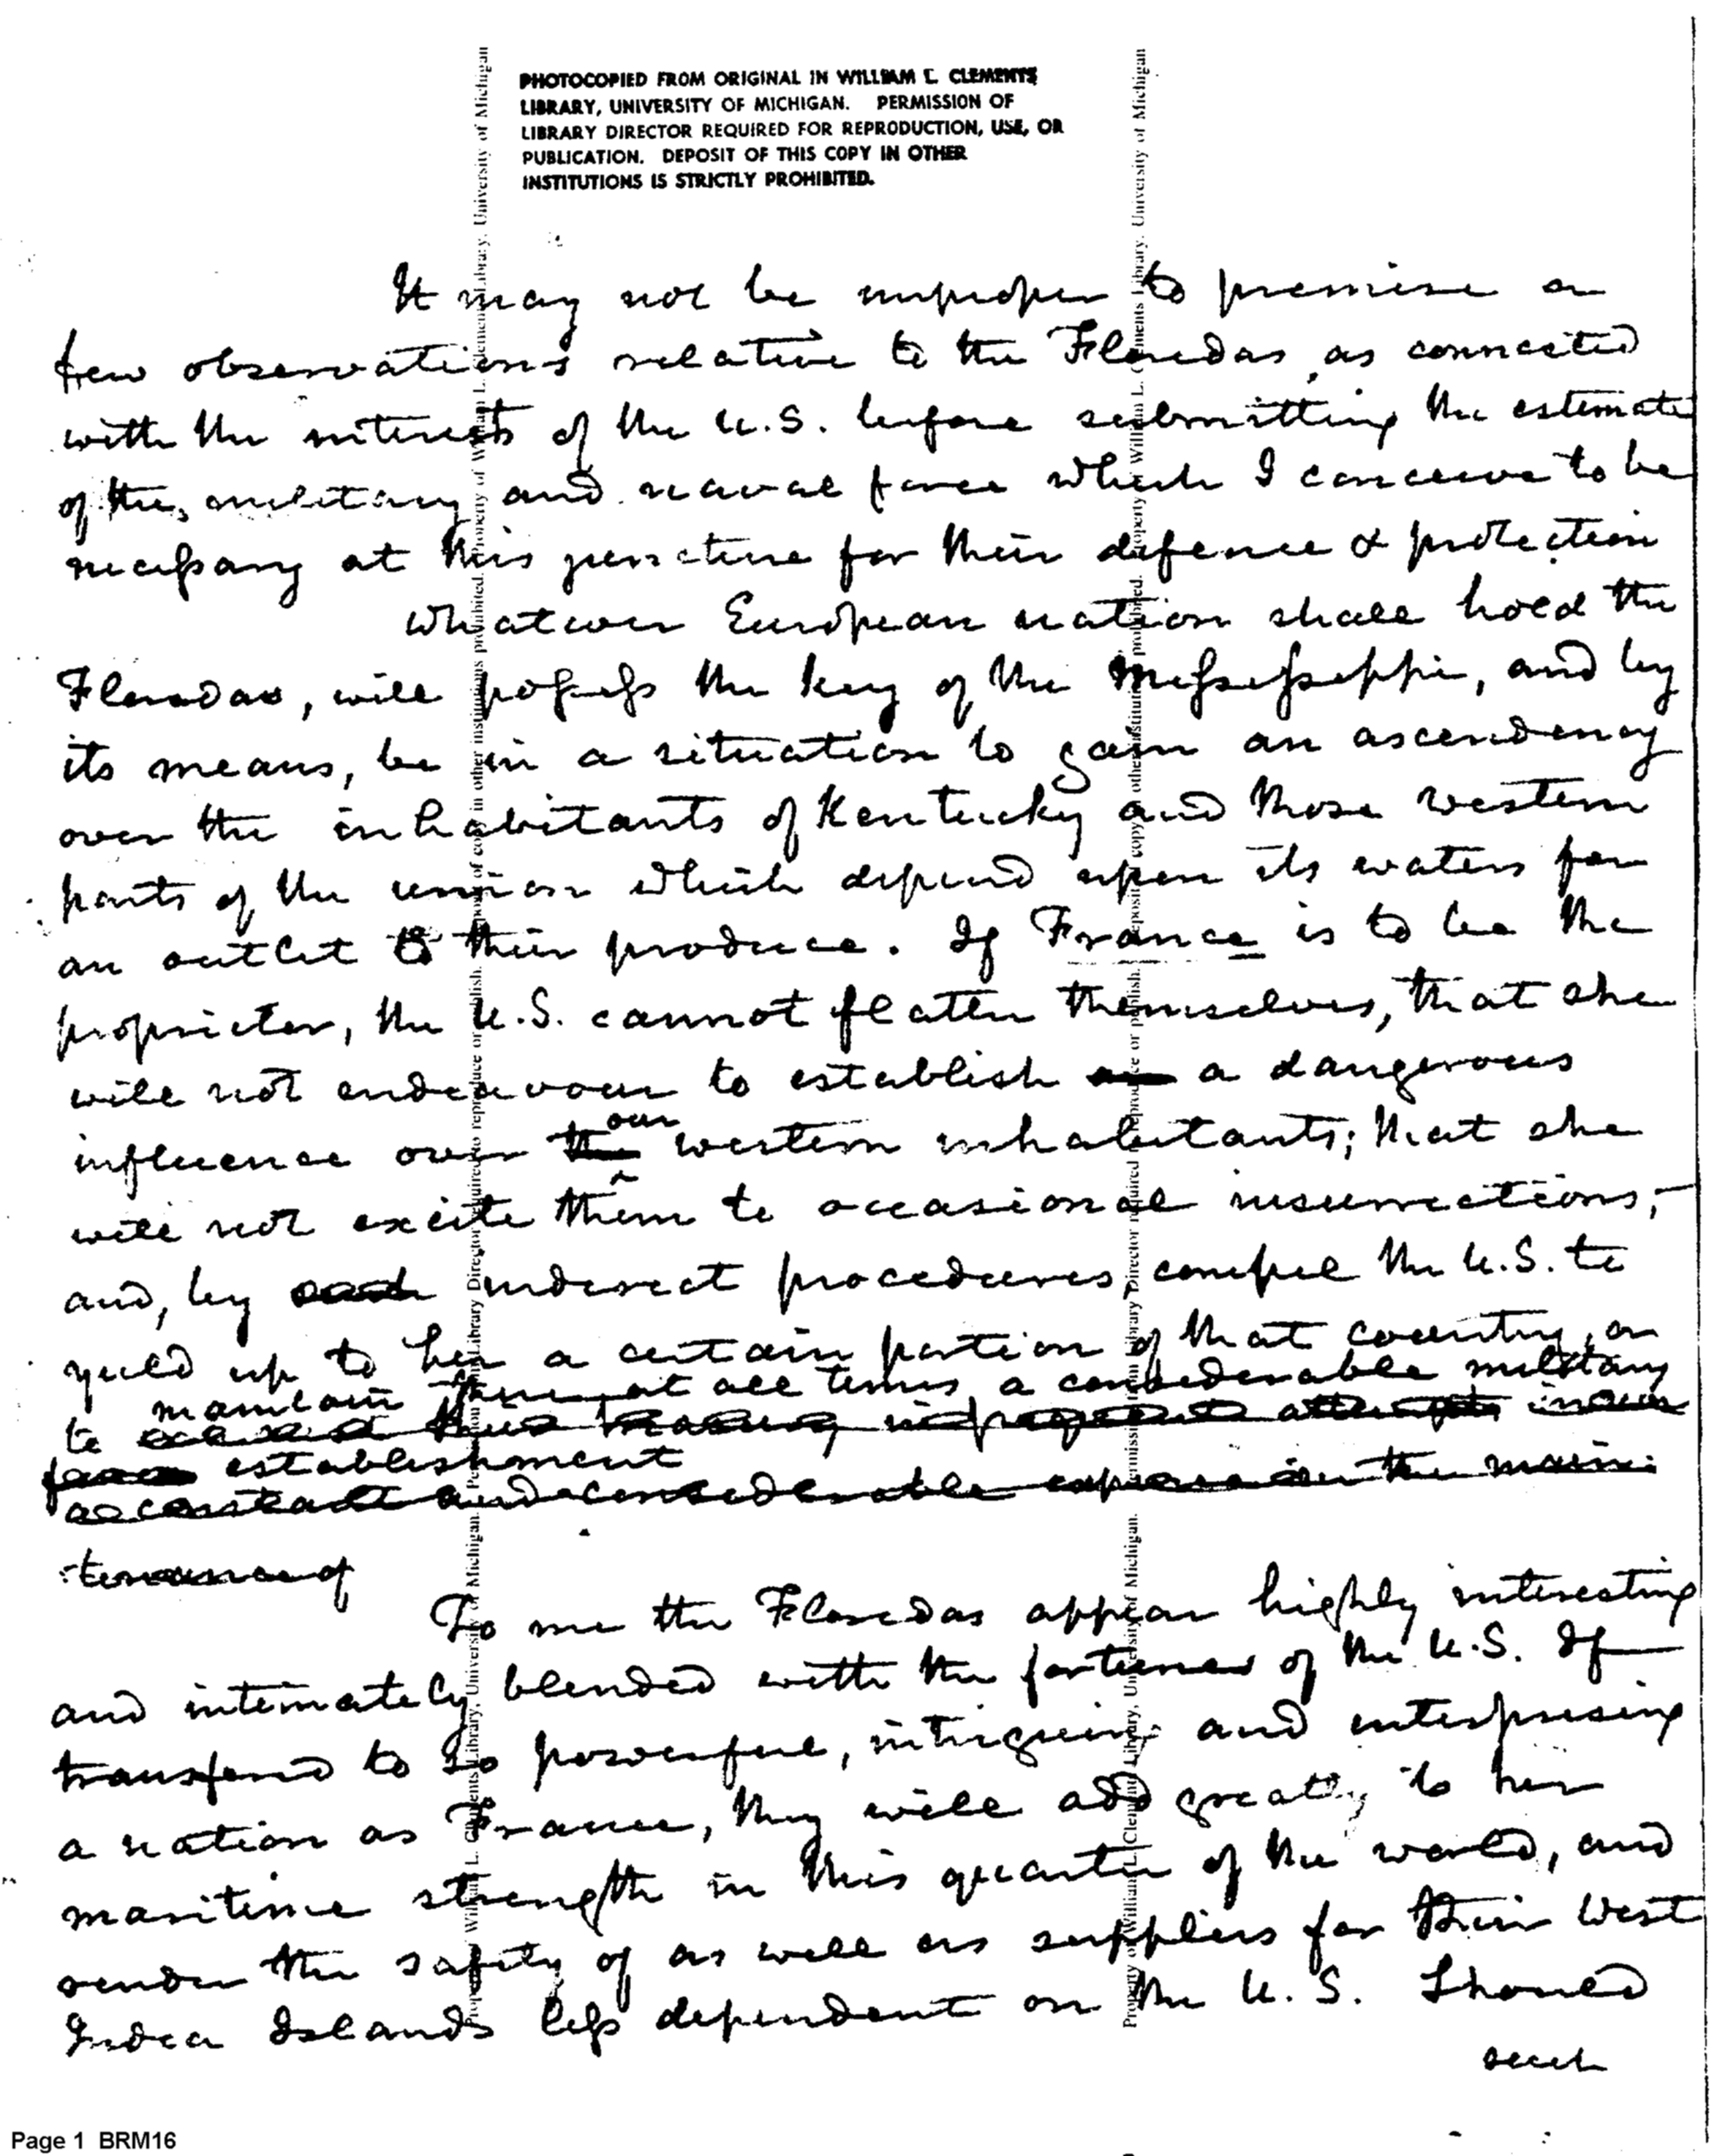 PHOTOCOPIED FROM ORIGINAL IN WILLIAM L. CLEMENTS
LIBRARY, UNIVERSITY OF MICHIGAN. PERMISSION OF
LIBRARY DIRECTOR REQUIRED FOR REPRODUCTION, USE, OR
PUBLICATION. DEPOSIT OF THIS COPY IN OTHER
INSTITUTIONS IS STRICTLY PROHIBITED.
It may not be improper to premise a
few observations relative to the Floridas, as connected
with the interests of the U.S. before submitting the estimate
of the, military and naval force which I conceive to be
necessary at this juncture for their defence & protection
Whatever European nation shall hold the
Floridas, will possess the key of the Mississippi, and by
its means, be in a situation to gain an ascendency
over the inhabitants of Kentucky and those western
parts of the union which depend upon its waters for
an outlet to their produce. If France is to be the
proprietor, the U.S. cannot flatter themselves, that she
will not endeavour to establish a dangerous
our
influence over the western inhabitants; that she
will not excite them to occasional insurrections,-
and, by indirect procedures, compel the U.S. to
yield up to her a certain portion of that country, or
maintain there, at all times, a considerable military
to
establishment
a constant and considerable expense in the main:
:tenance of
To me the Floridas appear highly interesting
and intimately blended with the fortunes of the U.S. If
transfered to so powerful, intriguing and enterprising
a nation as France, they will add greatly to her
maritime strength in this quarter of the world, and
render the safety of as well as supplies for their West
India Islands less dependent on the U.S. Should
such
Page 1 BRM16